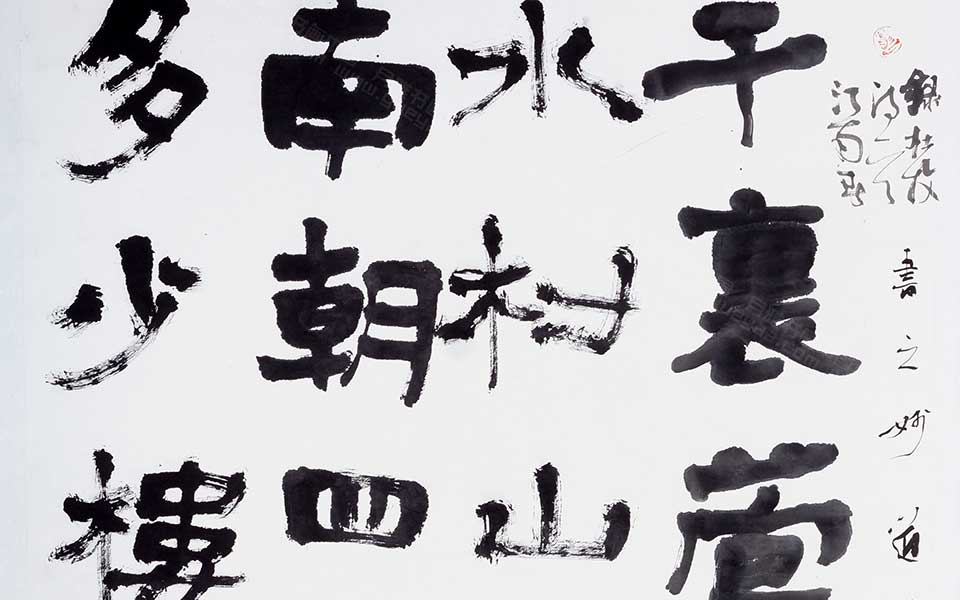 錄杜牧
诗一首
江南春
書之妙道
千裏
水村山
南朝四
多少樓